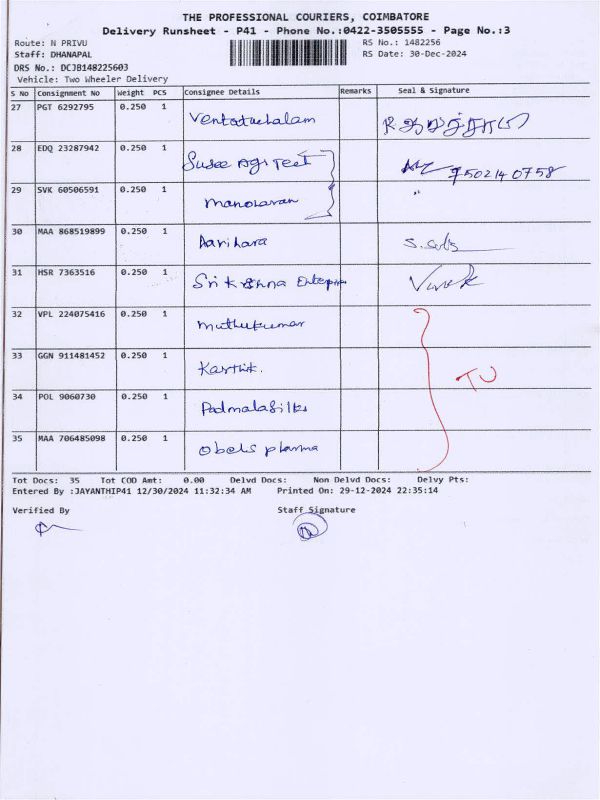 THE PROFESSIONAL COURIERS, COIMBATORE
Delivery Runsheet - P41 - Phone No.:0422-3505555 - Page No.:3
Route: N PRIVU
RS No.: 1482256
Staff: DHANAPAL
RS Date: 30-Dec-2024
DRS No.: DCJB148225603
Vehicle: Two Wheeler Delivery
S No Consignment No Weight PCS Consignee Details Remarks Seal & Signature
27 PGT 6292795 0.250 1 Ventatachalam
28 EDQ 23287942 0.250 1 Susee Agi Teet 7502140758
29 SVK 60506591 0.250 1 Manoharan "
30 MAA 868519899 0.250 1 Aarihara
31 HSR 7363516 0.250 1 Sri Krishna Enterprises Vivek
32 VPL 224075416 0.250 1 Muthukumar
33 GGN 911481452 0.250 1 Karthik. TU
34 POL 9060730 0.250 1 Padmalasilks
35 MAA 706485098 0.250 1 Obels pharma
Tot Docs: 35 Tot COD Amt: 0.00 Delvd Docs: Non Delvd Docs: Delvy Pts:
Entered By :JAYANTHIP41 12/30/2024 11:32:34 AM Printed On: 29-12-2024 22:35:14
Verified By Staff Signature